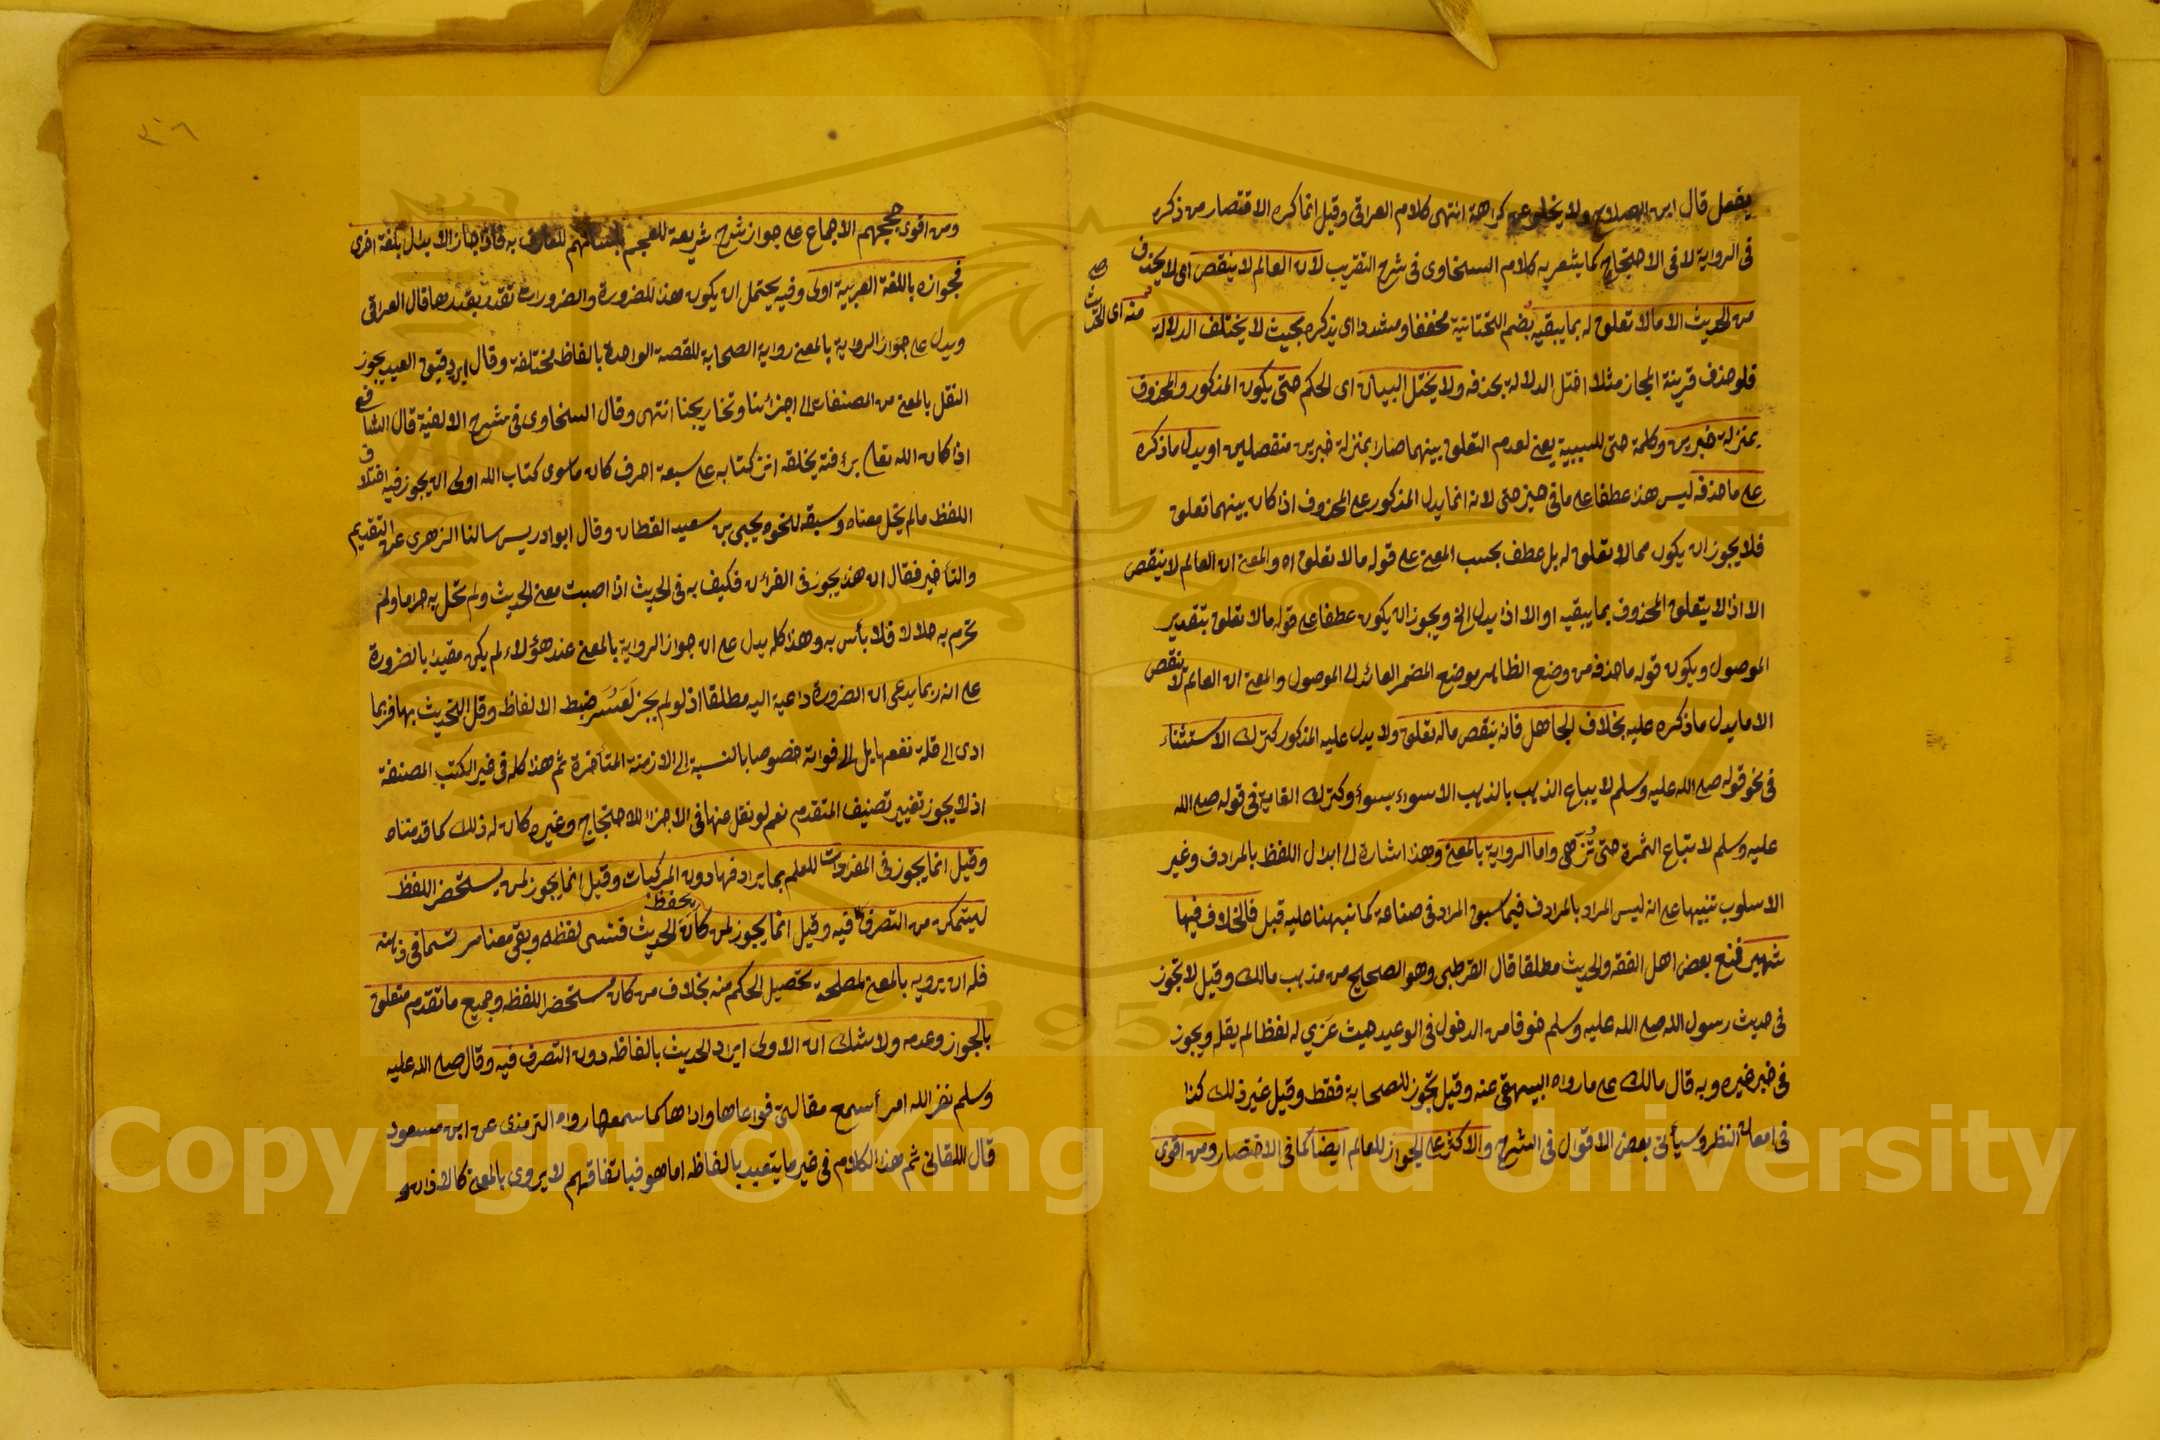 يفعل قال ابن الصلاح ولا يخلو عن كراهة انتهى كلام العراقي وقيل انما كره الاقتصار من ذكره
في الرواية لا في الاحتجاج كما يشعر به كلام السخاوي في شرح التقريب لان العالم لا ينقص اى لا يحذف
منه اى الحديث
من الحديث الا مالا تعلق له بما يبقيه بضم التحتانية مخففا ومشددا اى يذكره بحيث لا يختلف الدلالة
فلو حذف قرينة المجاز مثلا اختل الدلالة بحذفه ولا يختل البيان اى الحكم حتى يكون المذكور والمحذوف
بمنزلة خبرين وكلمة حتى للسببية يعني لعدم التعلق بينهما صارا بمنزلة خبرين منفصلين او يدل ما ذكره
على ما حذفه ليس هذا عطفا على ما في حيز حتى لانه انما يدل المذكور على المحذوف اذا كان بينهما تعلق
فلا يجوز ان يكون مما لا تعلق له بل عطف بحسب المعنى على قوله مالا تعلق اه والمعنى ان العالم لا ينقص
الا اذا لا يتعلق المحذوف بما يبقيه او الا اذا يدل الخ ويجوز ان يكون عطفا على قوله مالا تعلق بتقدير
الموصول ويكون قوله ما حذفه من وضع الظاهر موضع المضمر العائد الى الموصول والمعنى ان العالم لا ينقص
الا ما يدل ما ذكره عليه بخلاف الجاهل فانه ينقص ماله تعلق ولا يدل عليه المذكور كترك الاستثناء
في نحو قوله صلى الله عليه وسلم لا يباع الذهب بالذهب الا سواء بسواء وكترك الغاية في قوله صلى الله
عليه وسلم لا تباع الثمرة حتى تزهى واما الرواية بالمعنى وهذا اشارة الى ابدال اللفظ بالمرادف وغير
الاسلوب تنبيها على انه ليس المراد بالمرادف فيما سبق المراد في صناعة كما نبهنا عليه قبل فالخلاف فيها
شهير فمنع بعض اهل الفقه والحديث مطلقا قال القرطبي وهو الصحيح من مذهب مالك وقيل لا تجوز
في حديث رسول الله صلى الله عليه وسلم خوفا من الدخول في الوعيد حيث عزي له لفظا لم يقله ويجوز
في خبر غيره وبه قال مالك على ما رواه البيهقي عنه وقيل تجوز للصحابة فقط وقيل غير ذلك كذا
في امعان النظر وسيأتي بعض الاقوال في الشرح والاكثر على الجواز للعالم ايضا كما في الاختصار ومن اقوى
٣٠٦
ومن اقوى حججهم الاجماع على جواز شرح شريعة للعجم بلسانهم للعارف به فاذا جاز الابدال بلغة اخرى
فجوازه باللغة العربية اولى وفيه يحتمل ان يكون هذا للضرورة والضرورات تقدر بقدرها قال العراقي
ويدل على جواز الرواية بالمعنى رواية الصحابة للقصة الواحدة بالفاظ مختلفة وقال ابن دقيق العيد يجوز
النقل بالمعنى من المصنفات الى اجزائنا وتخاريجنا انتهى وقال السخاوي في شرح الالفية قال الشافعي
اذا كان الله تعالى برأفته بخلقه انزل كتابه على سبعة احرف كان ما سوى كتاب الله اولى ان يجوز فيه اختلاف
اللفظ مالم يحل معناه وسبقه لنحوه يحيى بن سعيد القطان وقال ابو ادريس سالنا الزهري عن التقديم
والتأخير فقال ان هذا يجوز في القرآن فكيف به في الحديث اذا اصبت معنى الحديث ولم تحل به حراما ولم
تحرم به حلالا فلا بأس به وهذا كله يدل على ان جواز الرواية بالمعنى عند هؤلاء لم يكن مقيدا بالضرورة
على انه ربما يدعى ان الضرورة داعية اليه مطلقا اذ لو لم يجز لعسر ضبط الالفاظ وقل التحديث بها فربما
ادى الى قلة نفعها بل الى فواته خصوصا بالنسبة الى الازمنة المتأخرة ثم هذا كله في غير الكتب المصنفة
اذ لا يجوز تغيير تصنيف المتقدم نعم لو نقل منها في الاجزاء للاحتجاج وغيره كان له ذلك كما قدمناه
وقيل انما يجوز في المفردات للعلم بما يرادفها دون المركبات وقيل انما يجوز لمن يستحضر اللفظ
ليتمكن من التصرف فيه وقيل انما يجوز لمن كان يحفظ الحديث فنسي لفظه وبقي معناه مرتسما في ذهنه
فله ان يرويه بالمعنى لمصلحة تحصيل الحكم منه بخلاف من كان مستحضرا للفظه وجميع ما تقدم متعلق
بالجواز وعدمه ولا شك ان الاولى ايراد الحديث بالفاظه دون التصرف فيه وقال صلى الله عليه
وسلم نضر الله امرأ سمع مقالتي فوعاها واداها كما سمعها رواه الترمذي عن ابن مسعود
قال اللقاني ثم هذا الكلام في غير ما يتعبد بالفاظه اما هو فباتفاقهم لا يروى بالمعنى كالاذان
Copyright © King Saud University
1957